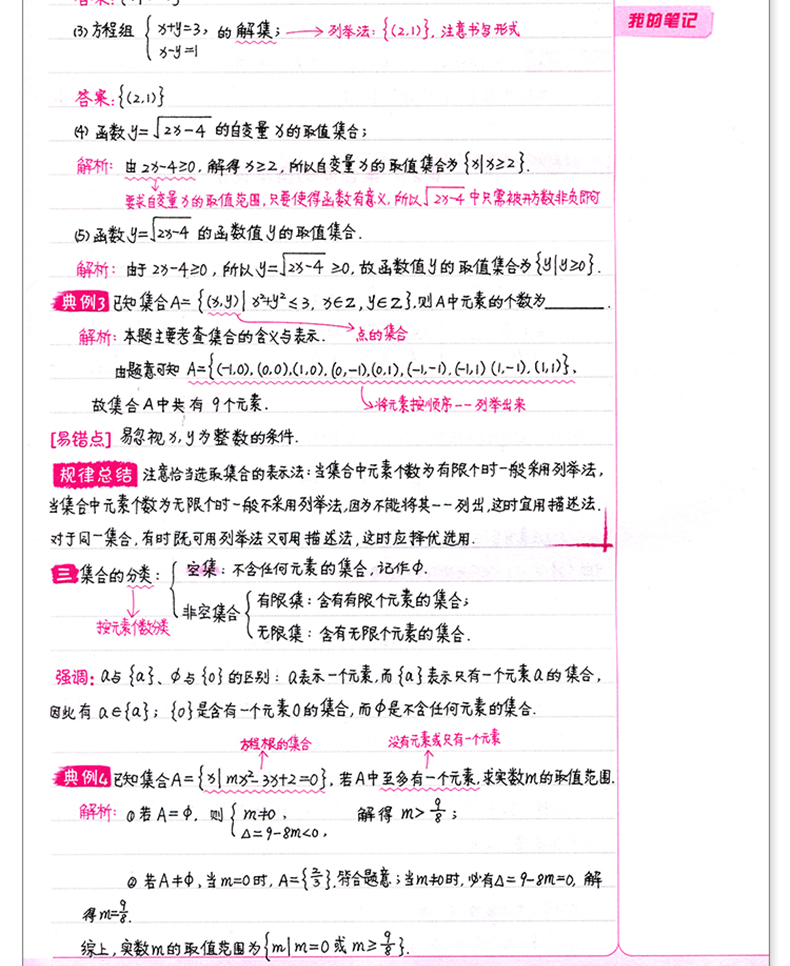 我的笔记
(3)方程组 { x+y=3, x-y=1 的解集; → 列举法:{(2,1)}, 注意书写形式
答案:{(2,1)}
(4) 函数y=√2x-4 的自变量x的取值集合;
解析: 由2x-4≥0, 解得x≥2, 所以自变量x的取值集合为{x|x≥2}.
要求自变量x的取值范围,只要使得函数有意义,所以√2x-4中只需被开方数非负即可
(5)函数y=√2x-4 的函数值y的取值集合.
解析: 由于2x-4≥0, 所以y=√2x-4 ≥0, 故函数值y的取值集合为{y|y≥0}.
典例3 已知集合A={(x,y)|x²+y²≤3, x∈Z, y∈Z},则A中元素的个数为______.
解析: 本题主要考查集合的含义与表示. 点的集合
由题意可知 A={(-1,0),(0,0),(1,0),(0,-1),(0,1),(-1,-1),(-1,1)(1,-1),(1,1)},
故集合A中共有9个元素. 将元素按顺序一一列举出来
[易错点] 易忽视x,y为整数的条件.
规律总结 注意恰当选取集合的表示法:当集合中元素个数为有限个时一般采用列举法,
当集合中元素个数为无限个时一般不采用列举法,因为不能将其一一列出,这时宜用描述法.
对于同一集合,有时既可用列举法又可用描述法,这时应择优选用.
三 集合的分类: { 空集: 不含任何元素的集合,记作φ.
非空集合 { 有限集: 含有有限个元素的集合;
按元素个数分类
无限集: 含有无限个元素的集合.
强调: a与{a}、φ与{0}的区别: a表示一个元素,而{a}表示只有一个元素a的集合,
因此有a∈{a}; {0}是含有一个元素0的集合,而φ是不含任何元素的集合.
方程根的集合 没有元素或只有一个元素
典例4 已知集合A={x|mx²-3x+2=0}, 若A中至多有一个元素,求实数m的取值范围.
解析: ①若A=φ, 则 { m≠0, Δ=9-8m<0, 解得m>9/8;
②若A≠φ, 当m=0时, A={2/3},符合题意;当m≠0时,必有Δ=9-8m=0, 解
得m=9/8.
综上,实数m的取值范围为{m|m=0或m≥9/8}.